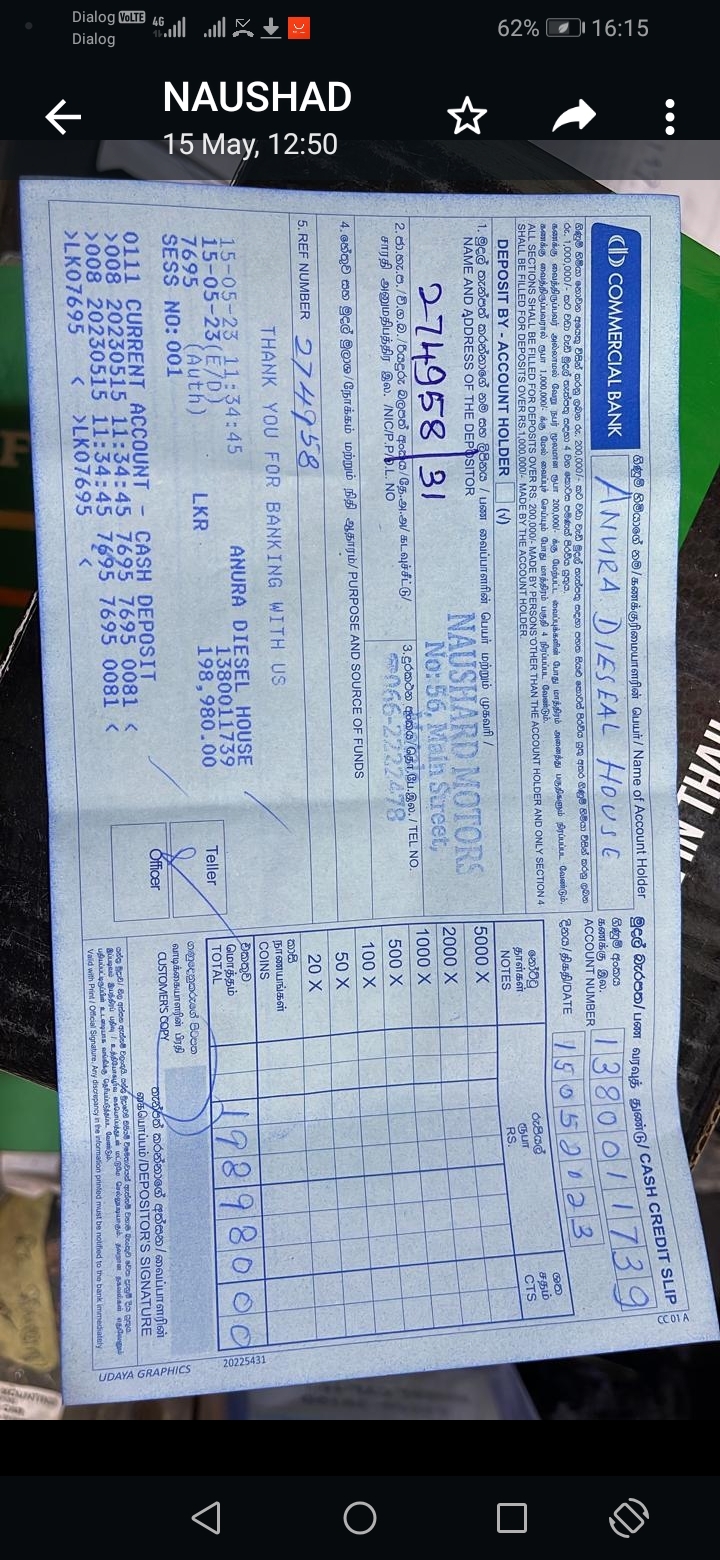 Dialog VoLTE 4G
Dialog
62% 16:15
NAUSHAD
15 May, 12:50
COMMERCIAL BANK
ගිණුම් හිමියාගේ නම / கணக்குரிமையாளரின் பெயர் / Name of Account Holder
ANURA DIESEAL HOUSE
ALL SECTIONS SHALL BE FILLED FOR DEPOSITS OVER RS. 200,000/- MADE BY PERSONS OTHER THAN THE ACCOUNT HOLDER AND ONLY SECTION 4
SHALL BE FILLED FOR DEPOSITS OVER RS.1,000,000/- MADE BY THE ACCOUNT HOLDER
DEPOSIT BY - ACCOUNT HOLDER (√)
NAME AND ADDRESS OF THE DEPOSITOR
274958 31
NAUSHARD MOTORS
No: 56, Main Street,
066-2222478
NIC/P.P/D.L NO
3. TEL NO.
4. PURPOSE AND SOURCE OF FUNDS
5. REF NUMBER 274958
THANK YOU FOR BANKING WITH US
15-05-23 11:34:45 ANURA DIESEL HOUSE
15-05-23(E/D) 1380011739
7695 (Auth) LKR 198,980.00
SESS NO:001
0111 CURRENT ACCOUNT - CASH DEPOSIT
>008 20230515 11:34:45 7695 7695 0081 <
>008 20230515 11:34:45 7695 7695 0081 <
>LK07695 < >LK07695 <
Teller
Officer
CASH CREDIT SLIP
CC 01 A
ගිණුම් අංකය
கணக்கு இல.
ACCOUNT NUMBER 1380011739
දිනය / திகதி / DATE 15052023
නෝට්ටු
தாள்கள்
NOTES
රුපියල්
ரூபா
RS.
ශත
சதம்
CTS
5000 X
2000 X
1000 X
500 X
100 X
50 X
20 X
කාසි
நாணயங்கள்
COINS
එකතුව
மொத்தம்
TOTAL 198980 00
CUSTOMER'S COPY
DEPOSITOR'S SIGNATURE
Valid with Print / Official Signature. Any discrepancy in the information printed must be notified to the bank immediately
UDAYA GRAPHICS
20225431